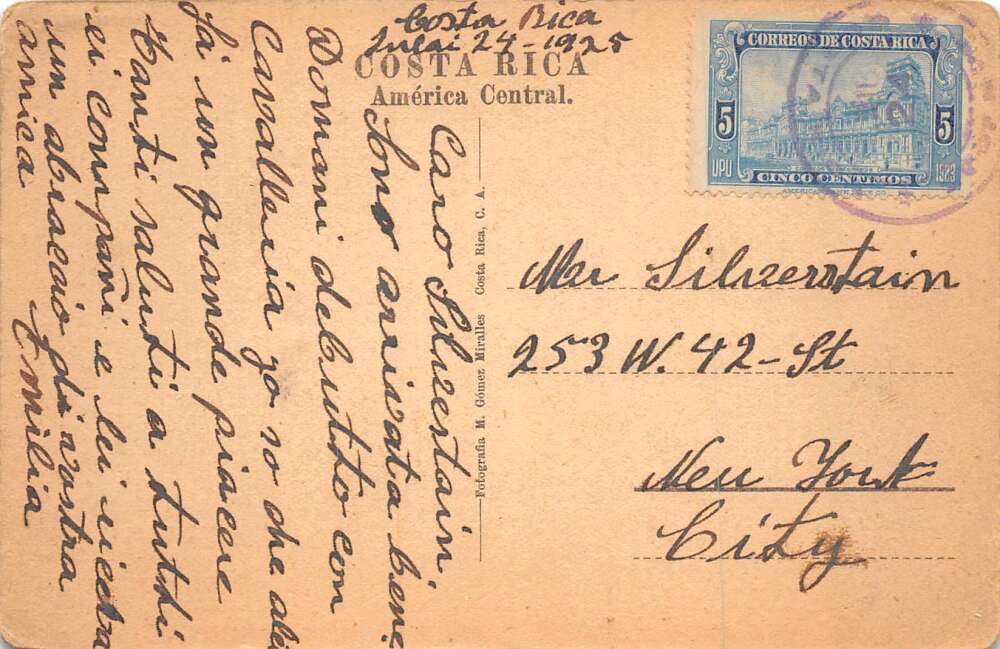 Costa Rica
Julai 24-1925
COSTA RICA
América Central.
Caro Silverstain.
Sono arrivata bene
Domani debutto con
Cavalleria go vo che ali
fà un grande piacere
Tanti saluti a tutti
ei compañi e lei riceva
un abraccio di vostra
amica Emilia
Fotografia M. Gómez Miralles Costa Rica, C. A.
CORREOS DE COSTA RICA
5 5
UPU 1923
CINCO CENTIMOS
Mr Silverstain
253 W. 42-St
New York
City